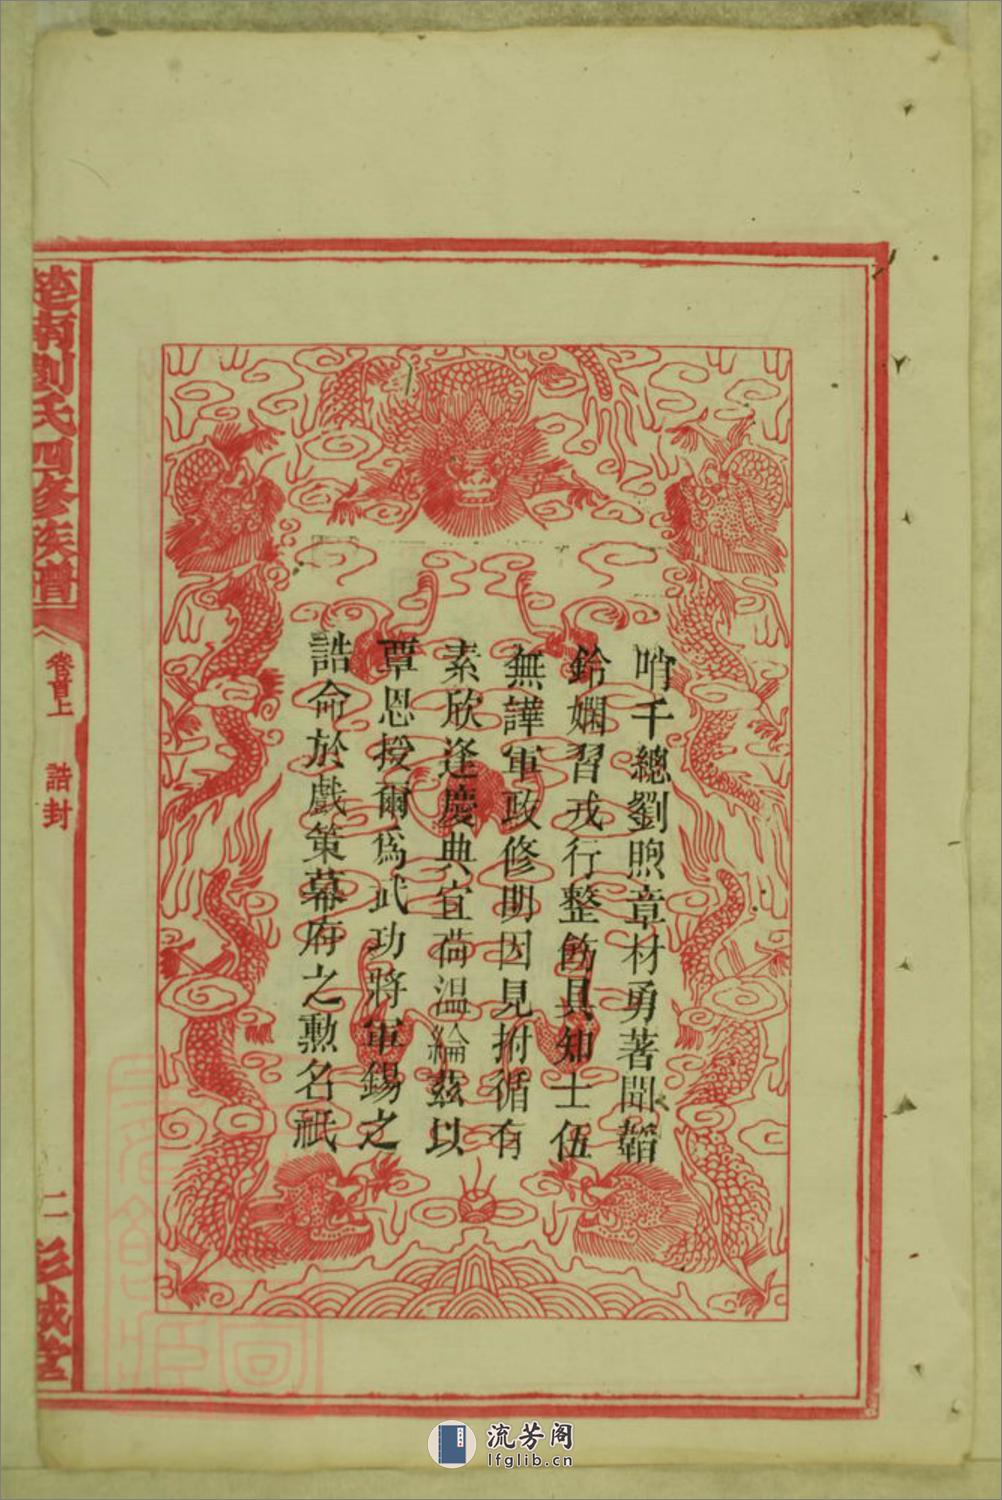 哨千總劉煦章材勇著聞韜
鈴嫻習戎行整飭具知士伍
無譁軍政修明因見拊循有
素欣逢慶典宜荷溫綸茲以
覃恩授爾爲武功將軍錫之
誥命於戲策幕府之勲名祇
楚南劉氏四修族譜
卷首上
誥封
二
彭城堂
流芳阁
lfglib.cn